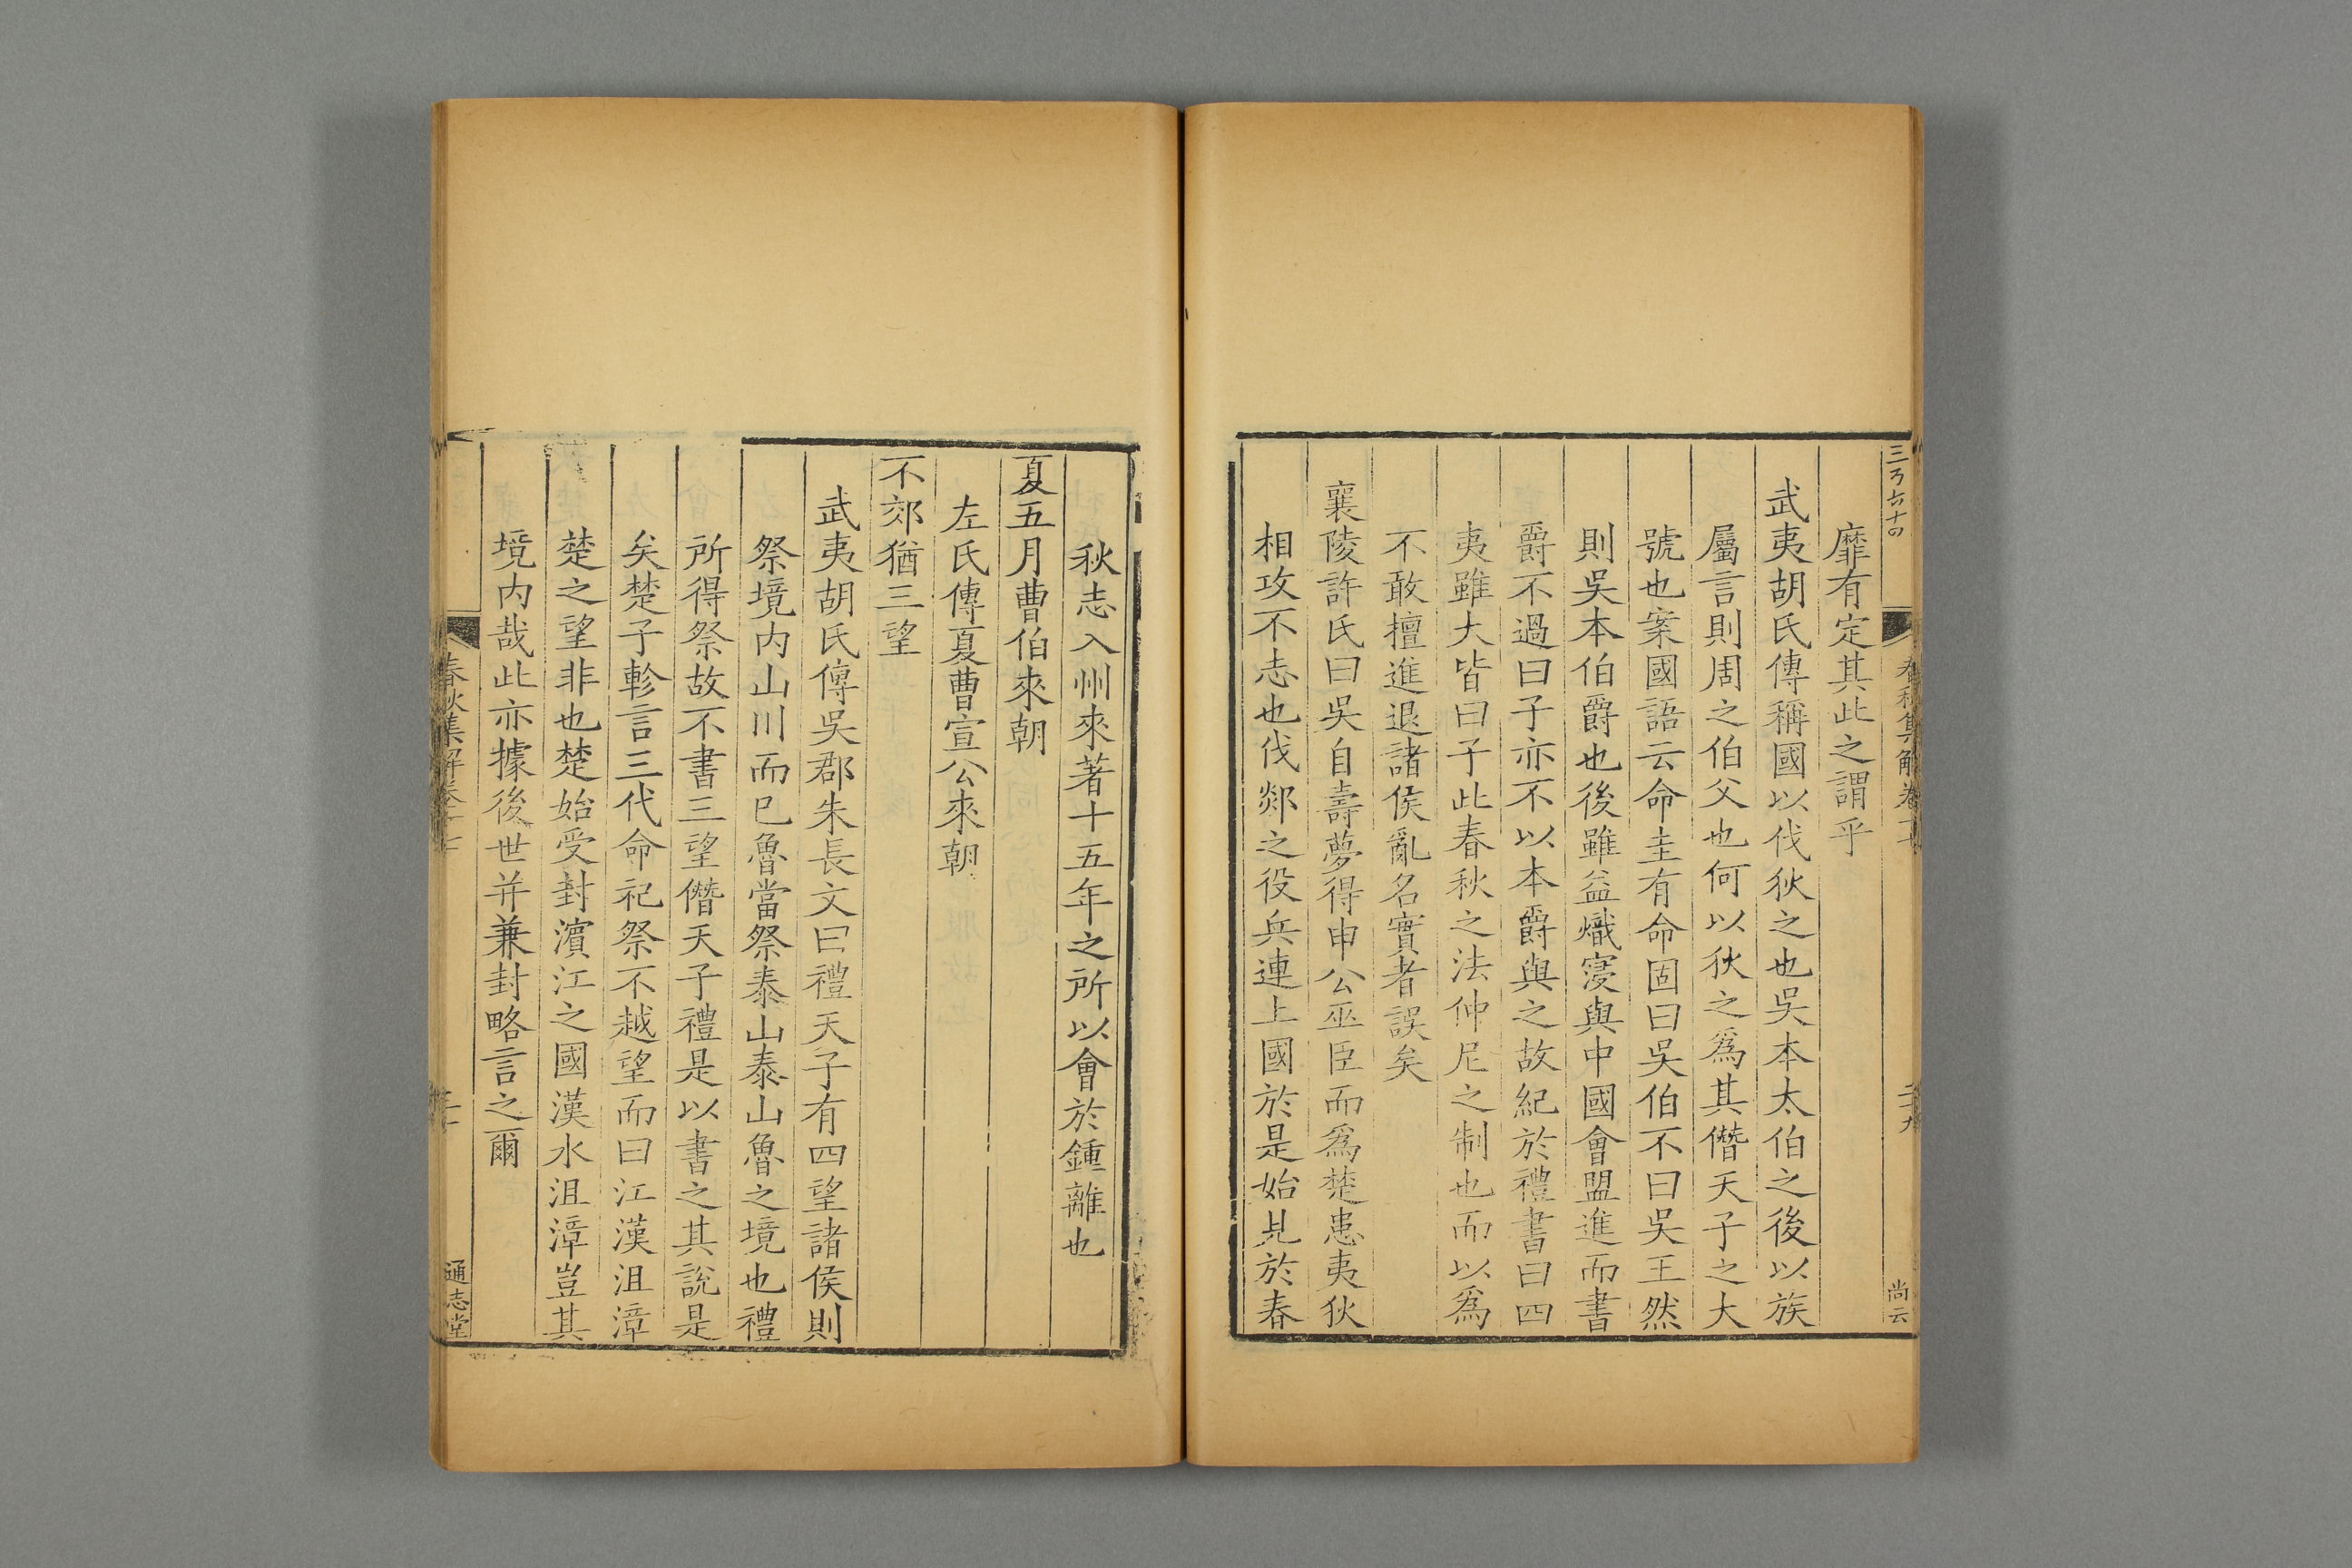 春秋集解卷十七
二十九
尚云
靡有定其此之謂乎
武夷胡氏傳稱國以伐狄之也吳本太伯之後以族
屬言則周之伯父也何以狄之爲其僭天子之大
號也案國語云命圭有命固曰吳伯不曰吳王然
則吳本伯爵也後雖益熾寖與中國會盟進而書
爵不過曰子亦不以本爵與之故紀於禮書曰四
夷雖大皆曰子此春秋之法仲尼之制也而以爲
不敢擅進退諸侯亂名實者誤矣
襄陵許氏曰吳自壽夢得申公巫臣而爲楚患夷狄
相攻不志也伐郯之役兵連上國於是始見於春
秋志入州來著十五年之所以會於鍾離也
夏五月曹伯來朝
左氏傳夏曹宣公來朝
不郊猶三望
武夷胡氏傳吳郡朱長文曰禮天子有四望諸侯則
祭境内山川而已魯當祭泰山泰山魯之境也禮
所得祭故不書三望僭天子禮是以書之其說是
矣楚子軫言三代命祀祭不越望而曰江漢沮漳
楚之望非也楚始受封濱江之國漢水沮漳豈其
境内哉此亦據後世并兼封略言之爾
春秋集解卷十七
通志堂